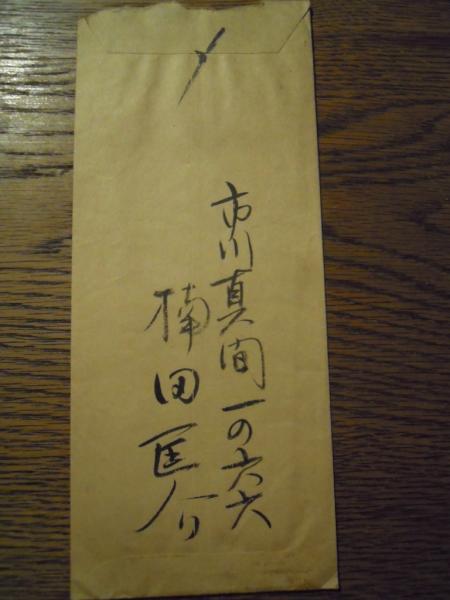 〆
市川真間一の六六
楠田匡介